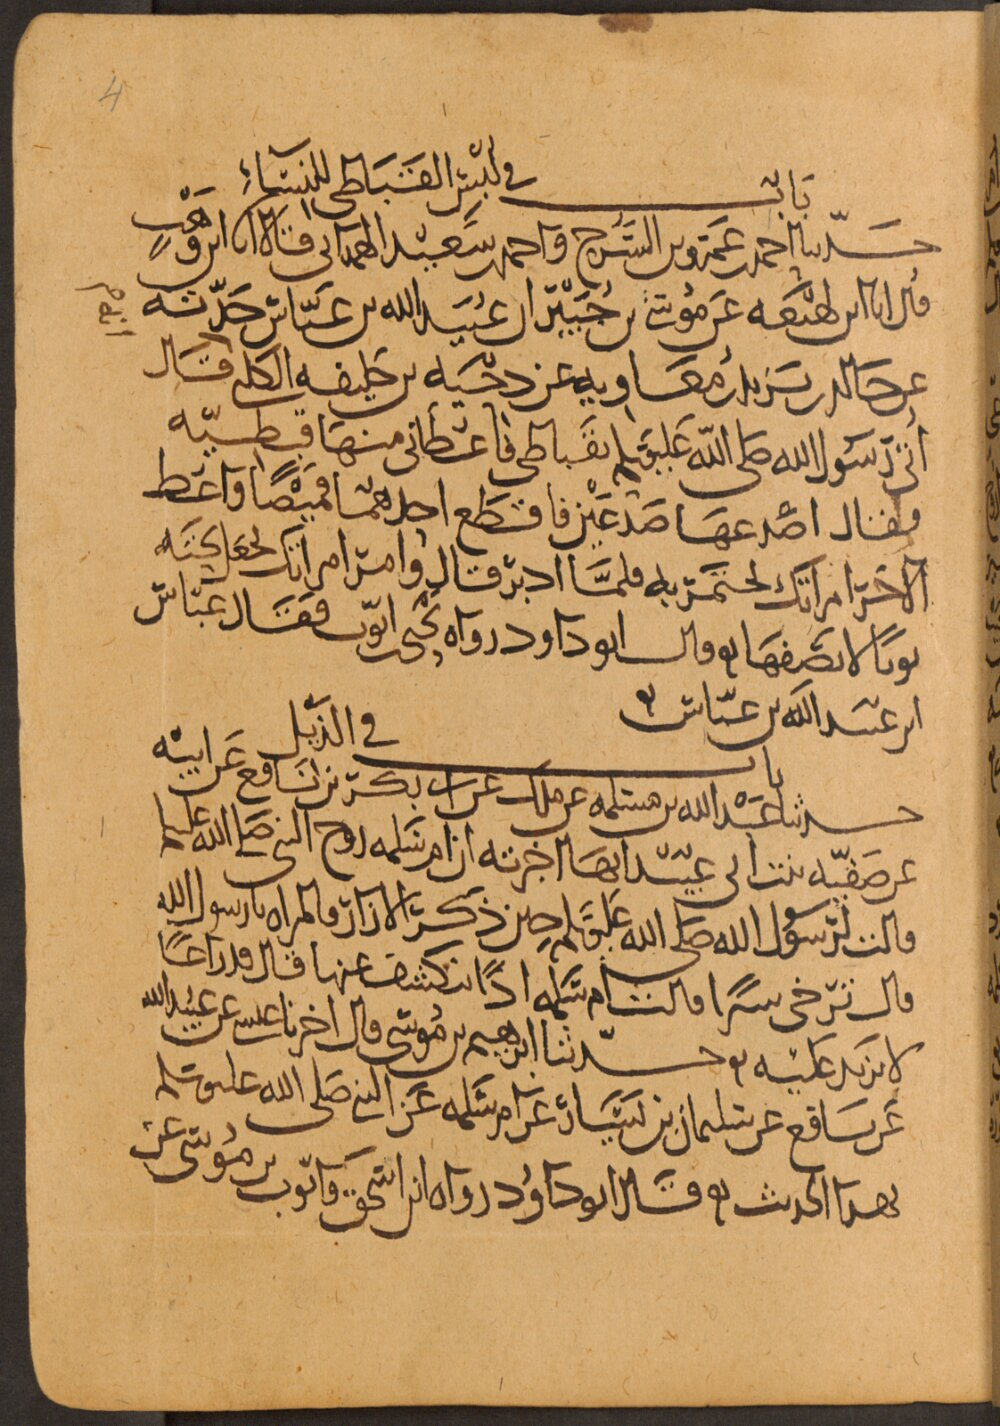 4
باب في لبس القباطي للنساء
حدثنا احمد بن عمرو بن السرح واحمد بن سعيد الهمداني قالا انا ابن وهب
قال انا ابن لهيعه عن موسى بن جبير ان عبيد الله بن عباس حدثه
عن خالد بن يزيد بن معاويه عن دحيه بن خليفه الكلبي قال
أتي رسول الله صلى الله عليه وسلم بقباطي فاعطاني منها قبطيه
فقال اصدعها صدعين فاقطع احدهما قميصا واعط
الآخر امراتك تختمر به فلما ادبر قال وامر امراتك تجعل تحته
ثوبا لا يصفها قال ابو داود رواه يحيى بن ايوب فقال عباس
ابن عبد الله بن عباس
باب في الذيل
حدثنا عبد الله بن مسلمه عن ملك عن ابي بكر بن نافع عن ابيه
عن صفيه بنت ابي عبيد انها اخبرته ان ام سلمه زوج النبي صلى الله عليه وسلم
قالت لرسول الله صلى الله عليه وسلم حين ذكر الازار فالمراه يا رسول الله
قال ترخي شبرا قالت ام سلمه اذا ينكشف عنها قال فذراعا
لا تزيد عليه حدثنا ابرهيم بن موسى قال اخبرنا عيسى عن عبيد الله
عن نافع عن سليمان بن يسار عن ام سلمه عن النبي صلى الله عليه وسلم
بهذا الحديث قال ابو داود رواه ابن اسحق وايوب بن موسى عن